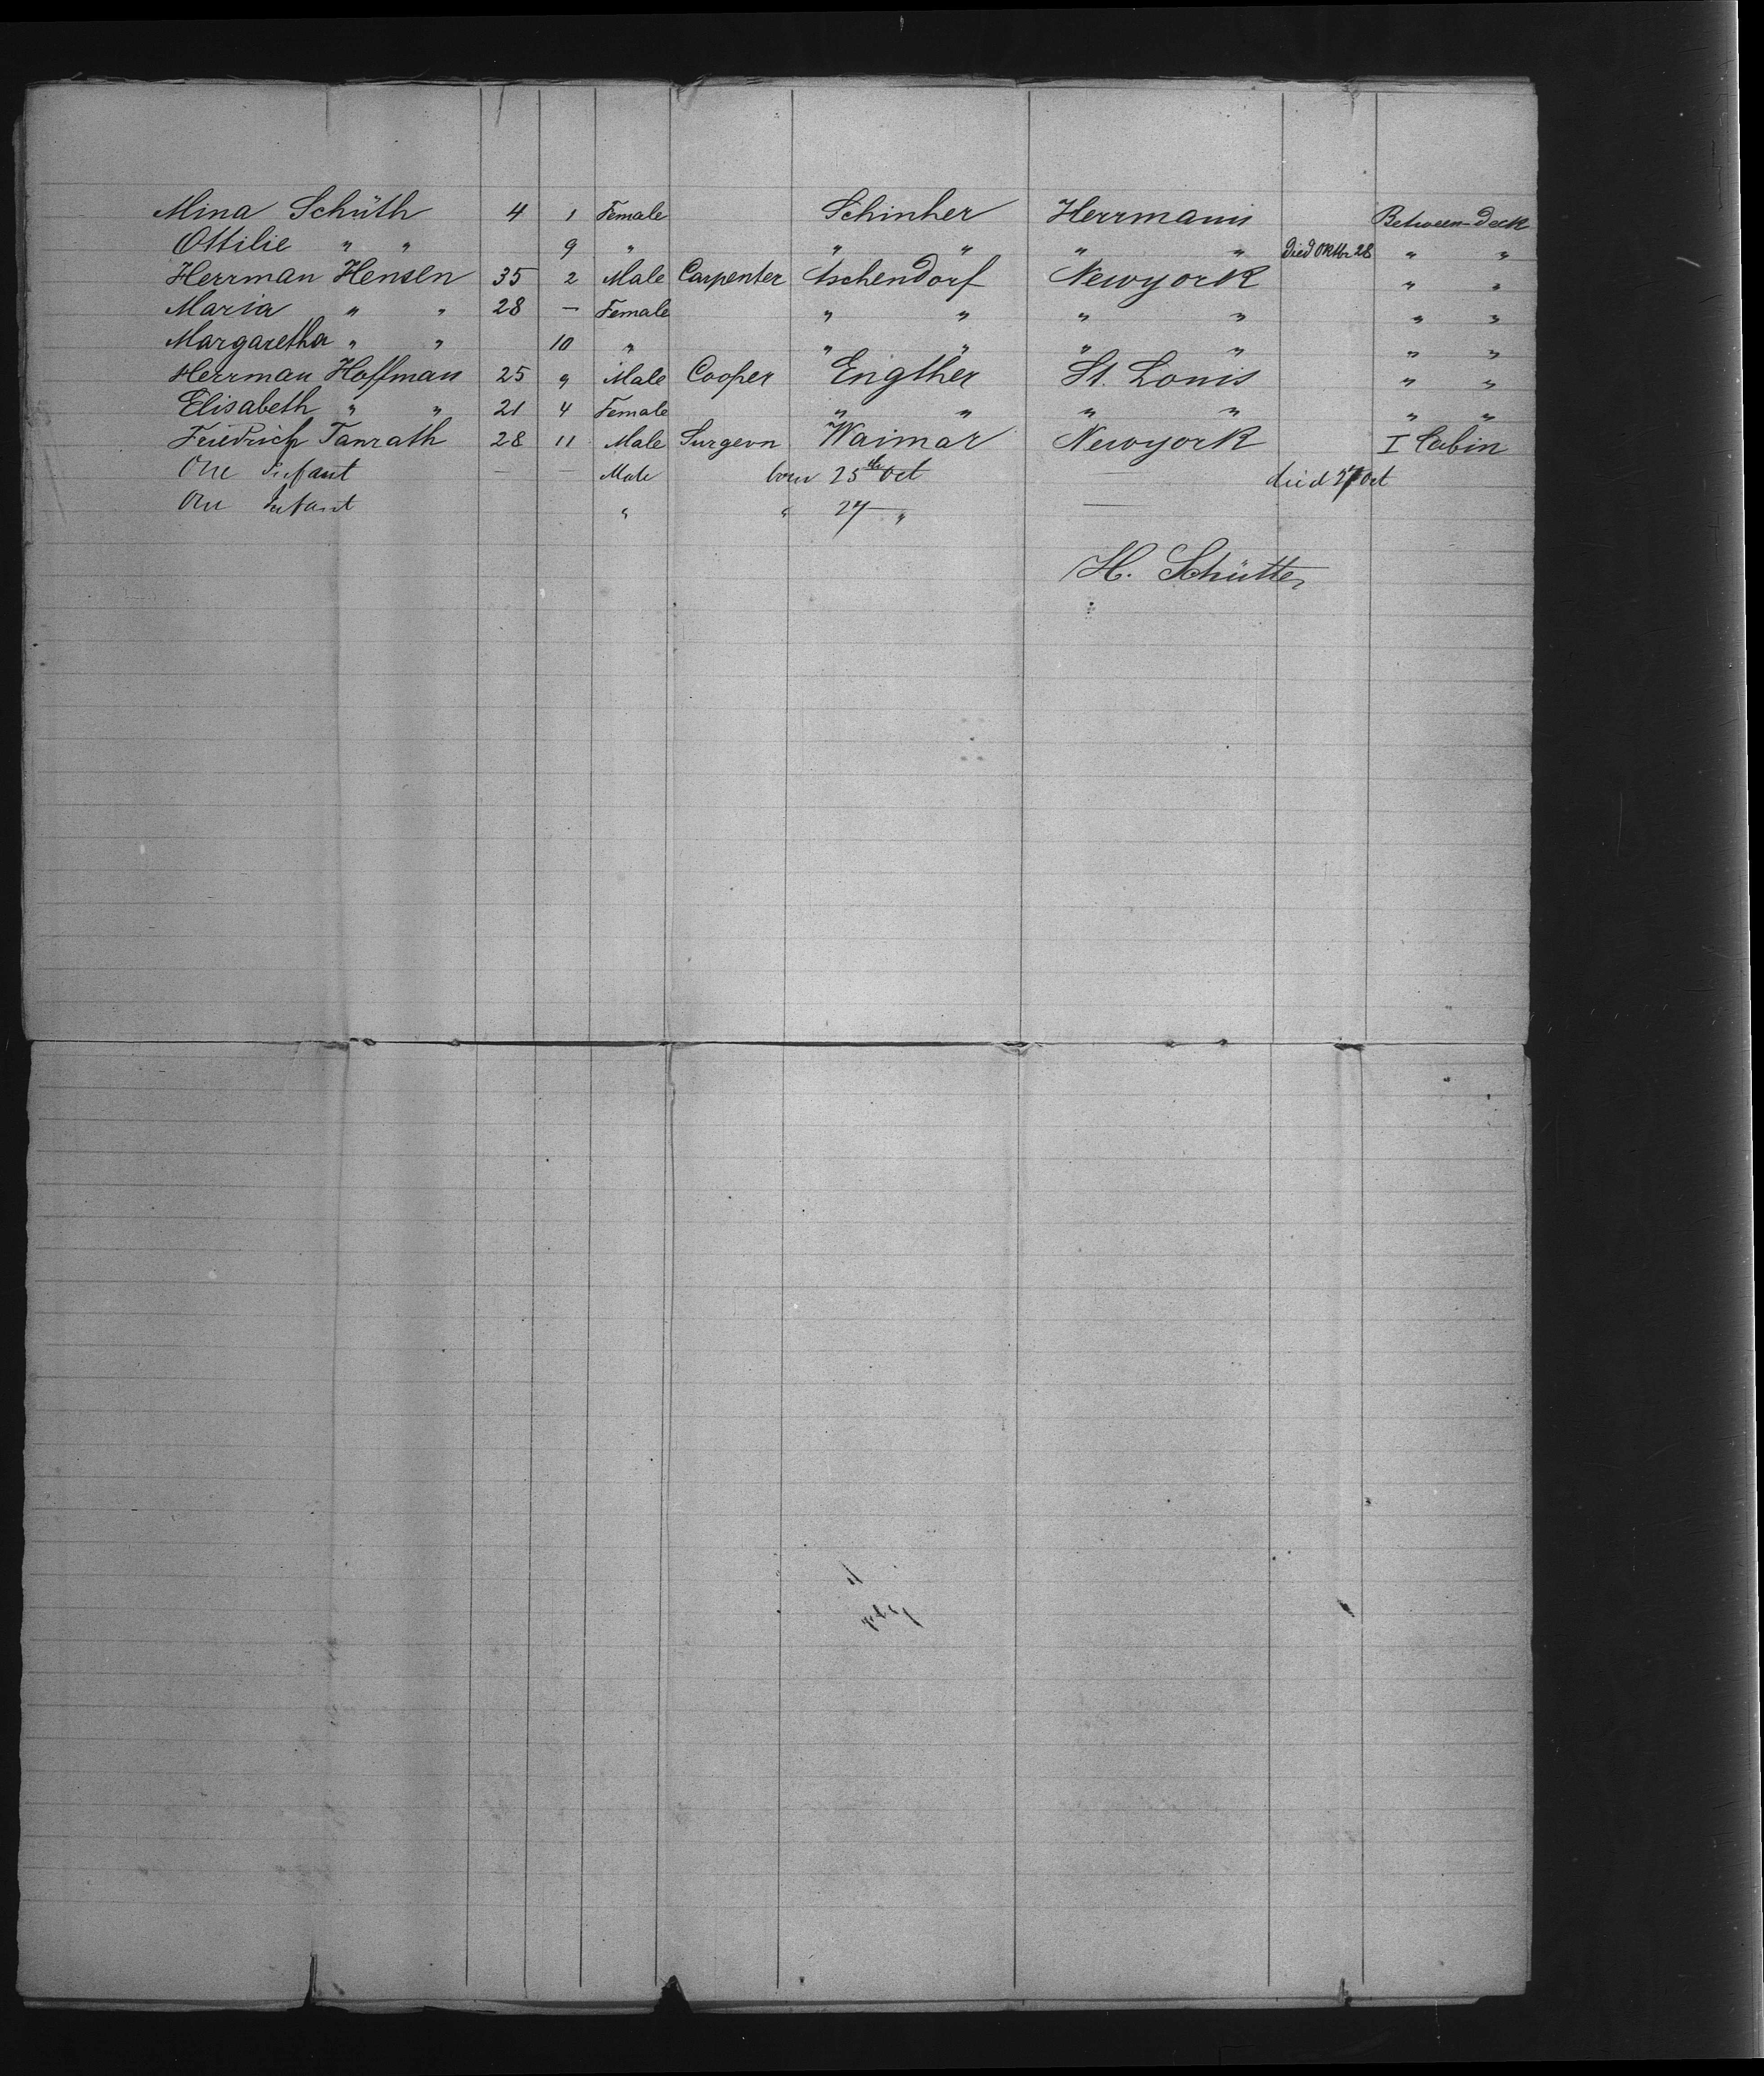 Mina Schüth 4 1 Female Schinher Herrmann Between-deck
Ottilie " " 9 " " " " " Died Oktbr 28 " "
Herrman Hensen 35 2 Male Carpenter Aschendorf Newyork " "
Maria " " 28 — Female " " " " " "
Margaretha " " 10 " " " " " " "
Herrman Hoffman 25 9 Male Cooper Engther St. Louis " "
Elisabeth " " 21 4 Female " " " " " "
Friedrich Tanrath 28 11 Male Surgevn Waimar Newyork I Cabin
One Infant — — Male born 25th Oct — died 27 Oct
One Infant " " 27 " —
H. Schütte